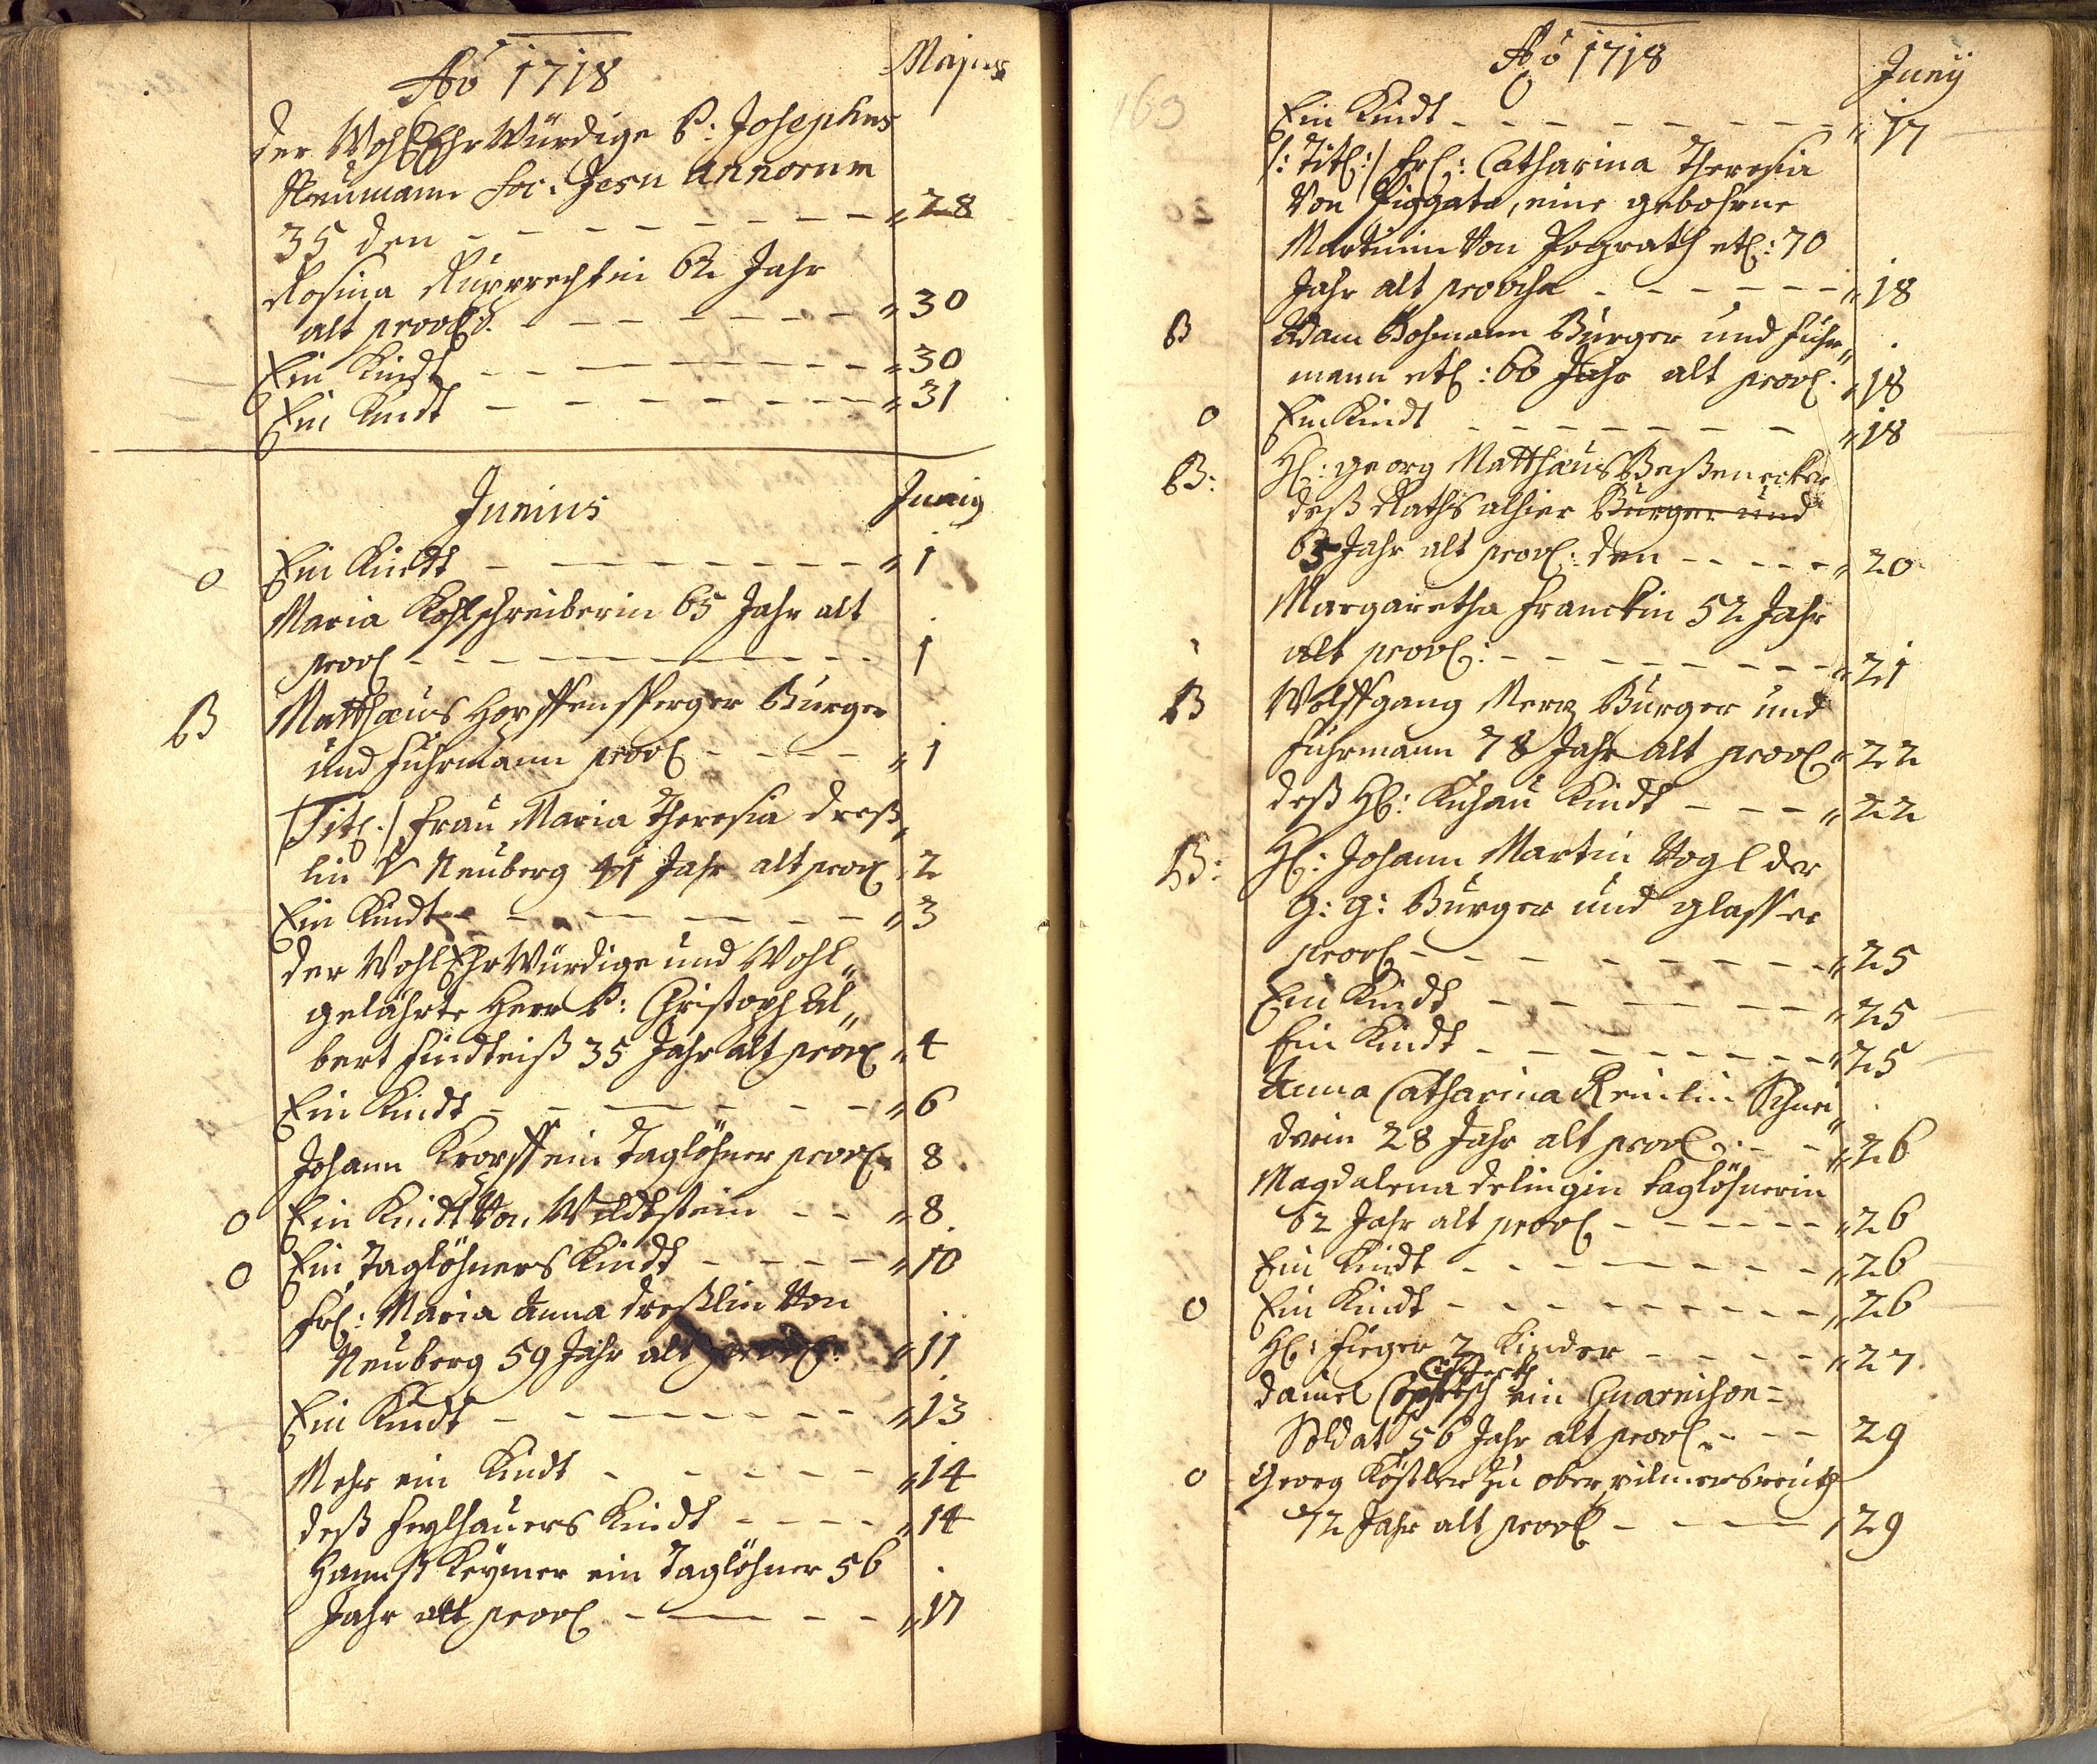 Aō 1718 Majus
der WohlEhrWürdige P: Josephus
Neumann Soc: Jesu Annorum
35 den „ 28
Rosina Rupprechtin 62 Jahr
alt provis: „ 30
Ein Kindt „ 30
Ein Kindt „ 31
Junius Junÿ
o Ein Kindt „ 1
Maria 65 Jahr alt
prov: 1
B Matthæus Burger
und Fuhrmann prov: „ 1
/Tit:/ Frau Maria Theresia Dreß„
lin V Neuberg 41 Jahr alt prov: 2
Ein Kindt „ 3
der WohlEhrWürdige und Wohl„
gelährte Herr P: Christoph Al„
bert 35 Jahr alt prov: „ 4
Ein Kindt „ 6
Johann ein Taglöhner prov: 8
o Ein Kindt Von Wildtstein „ 8
o Ein Taglöhners Kindt „ 10
Frl: Maria Anna Dreßlin Von
Neuberg 59 Jahr alt „ 11
Ein Kindt „ 13
Mehr ein Kindt „ 14
deß Feylhauers Kindt „ 14
Hannß Keÿmer ein Taglöhner 56
Jahr alt prov: „ 17
163
Aō 1718 Junÿ
Ein Kindt „ 17
/: Titl:/ Frl: Catharina Theresia
Von Piggata, eine gebohrne
Von Pograth etc: 70
Jahr alt „ 18
B Adam Bohmann Burger und Fuhr„
mann etc: 66 Jahr alt prov: „ 18
o Ein Kindt „ 18
B: H: Georg Matthæus
deß Raths alhier Burger und
65 Jahr alt prov: den „ 20
Margaretha Franckin 52 Jahr
alt prov: „ 21
B Wolffgang Merz Burger und
Fuhrmann 78 Jahr alt prov: „ 22
deß H: Kindt „ 22
B: H: Johann Martin Vogl der
G: G: Burger und Glasser
prov: „ 25
Ein Kindt „ 25
Ein Kindt „ 25
Anna Catharina Schnei„
derin 28 Jahr alt prov: „ 26
Magdalena Delingin Taglöhnerin
62 Jahr alt prov: „ 26
Ein Kindt „ 26
o Ein Kindt „ 26
H: Fieger 2 Kinder „ 27
Daniel ein Guarnison=
Soldat 56 Jahr alt prov: 29
o Georg Köstler zu
72 Jahr alt prov: 29